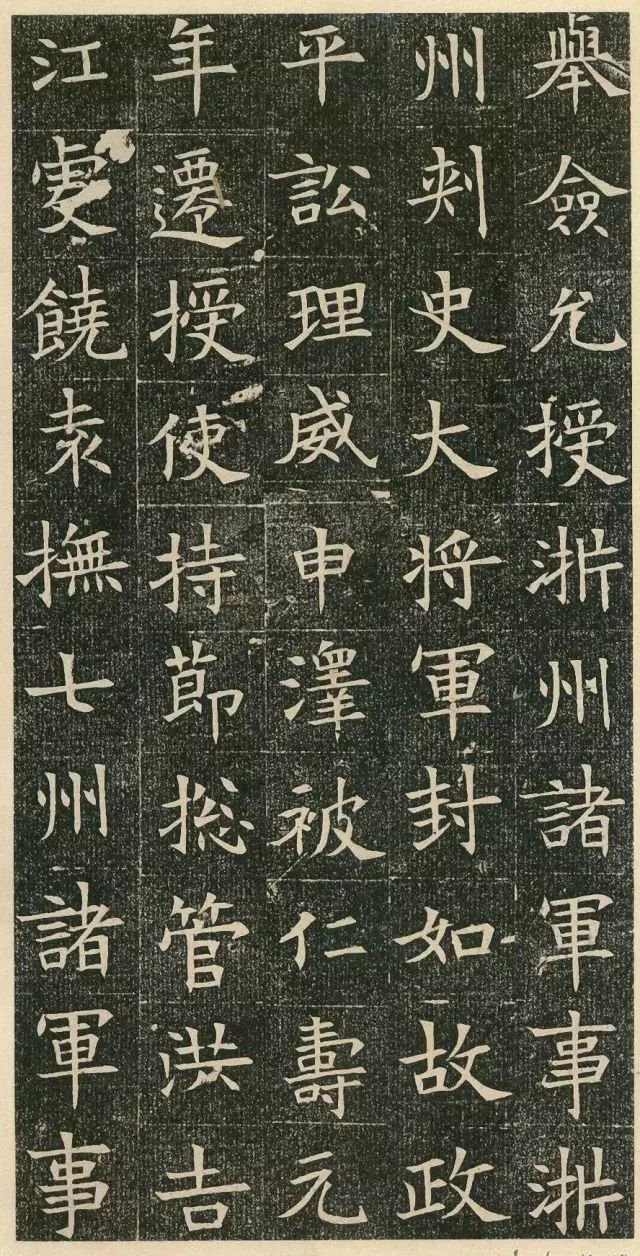 舉僉允授浙州諸軍事浙
州刾史大将軍封如故政
平訟理威申澤被仁壽元
年遷授使持節捴管洪吉
江虔饒袁撫七州諸軍事